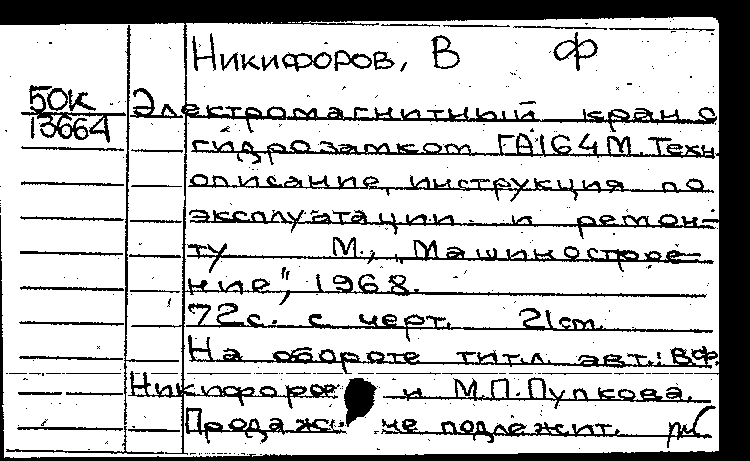 Никифоров, В Ф
50К
13664
Электромагнитный кран с
гидрозамком ГА164М. Техн.
описание, инструкция по
эксплуатации и ремон-
ту М., "Машинострое-
ние", 1968.
72с. с черт. 21cm.
На обороте тит.л. авт.: В.Ф.
Никифоров и М.П.Пупкова.
Продаже не подлежит.